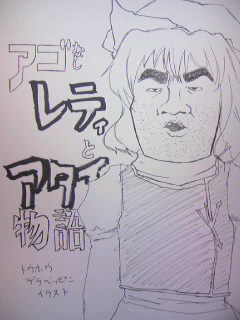 アゴなし
レティと
アタイ
物語
トウホウ
デラベッピン
イラスト